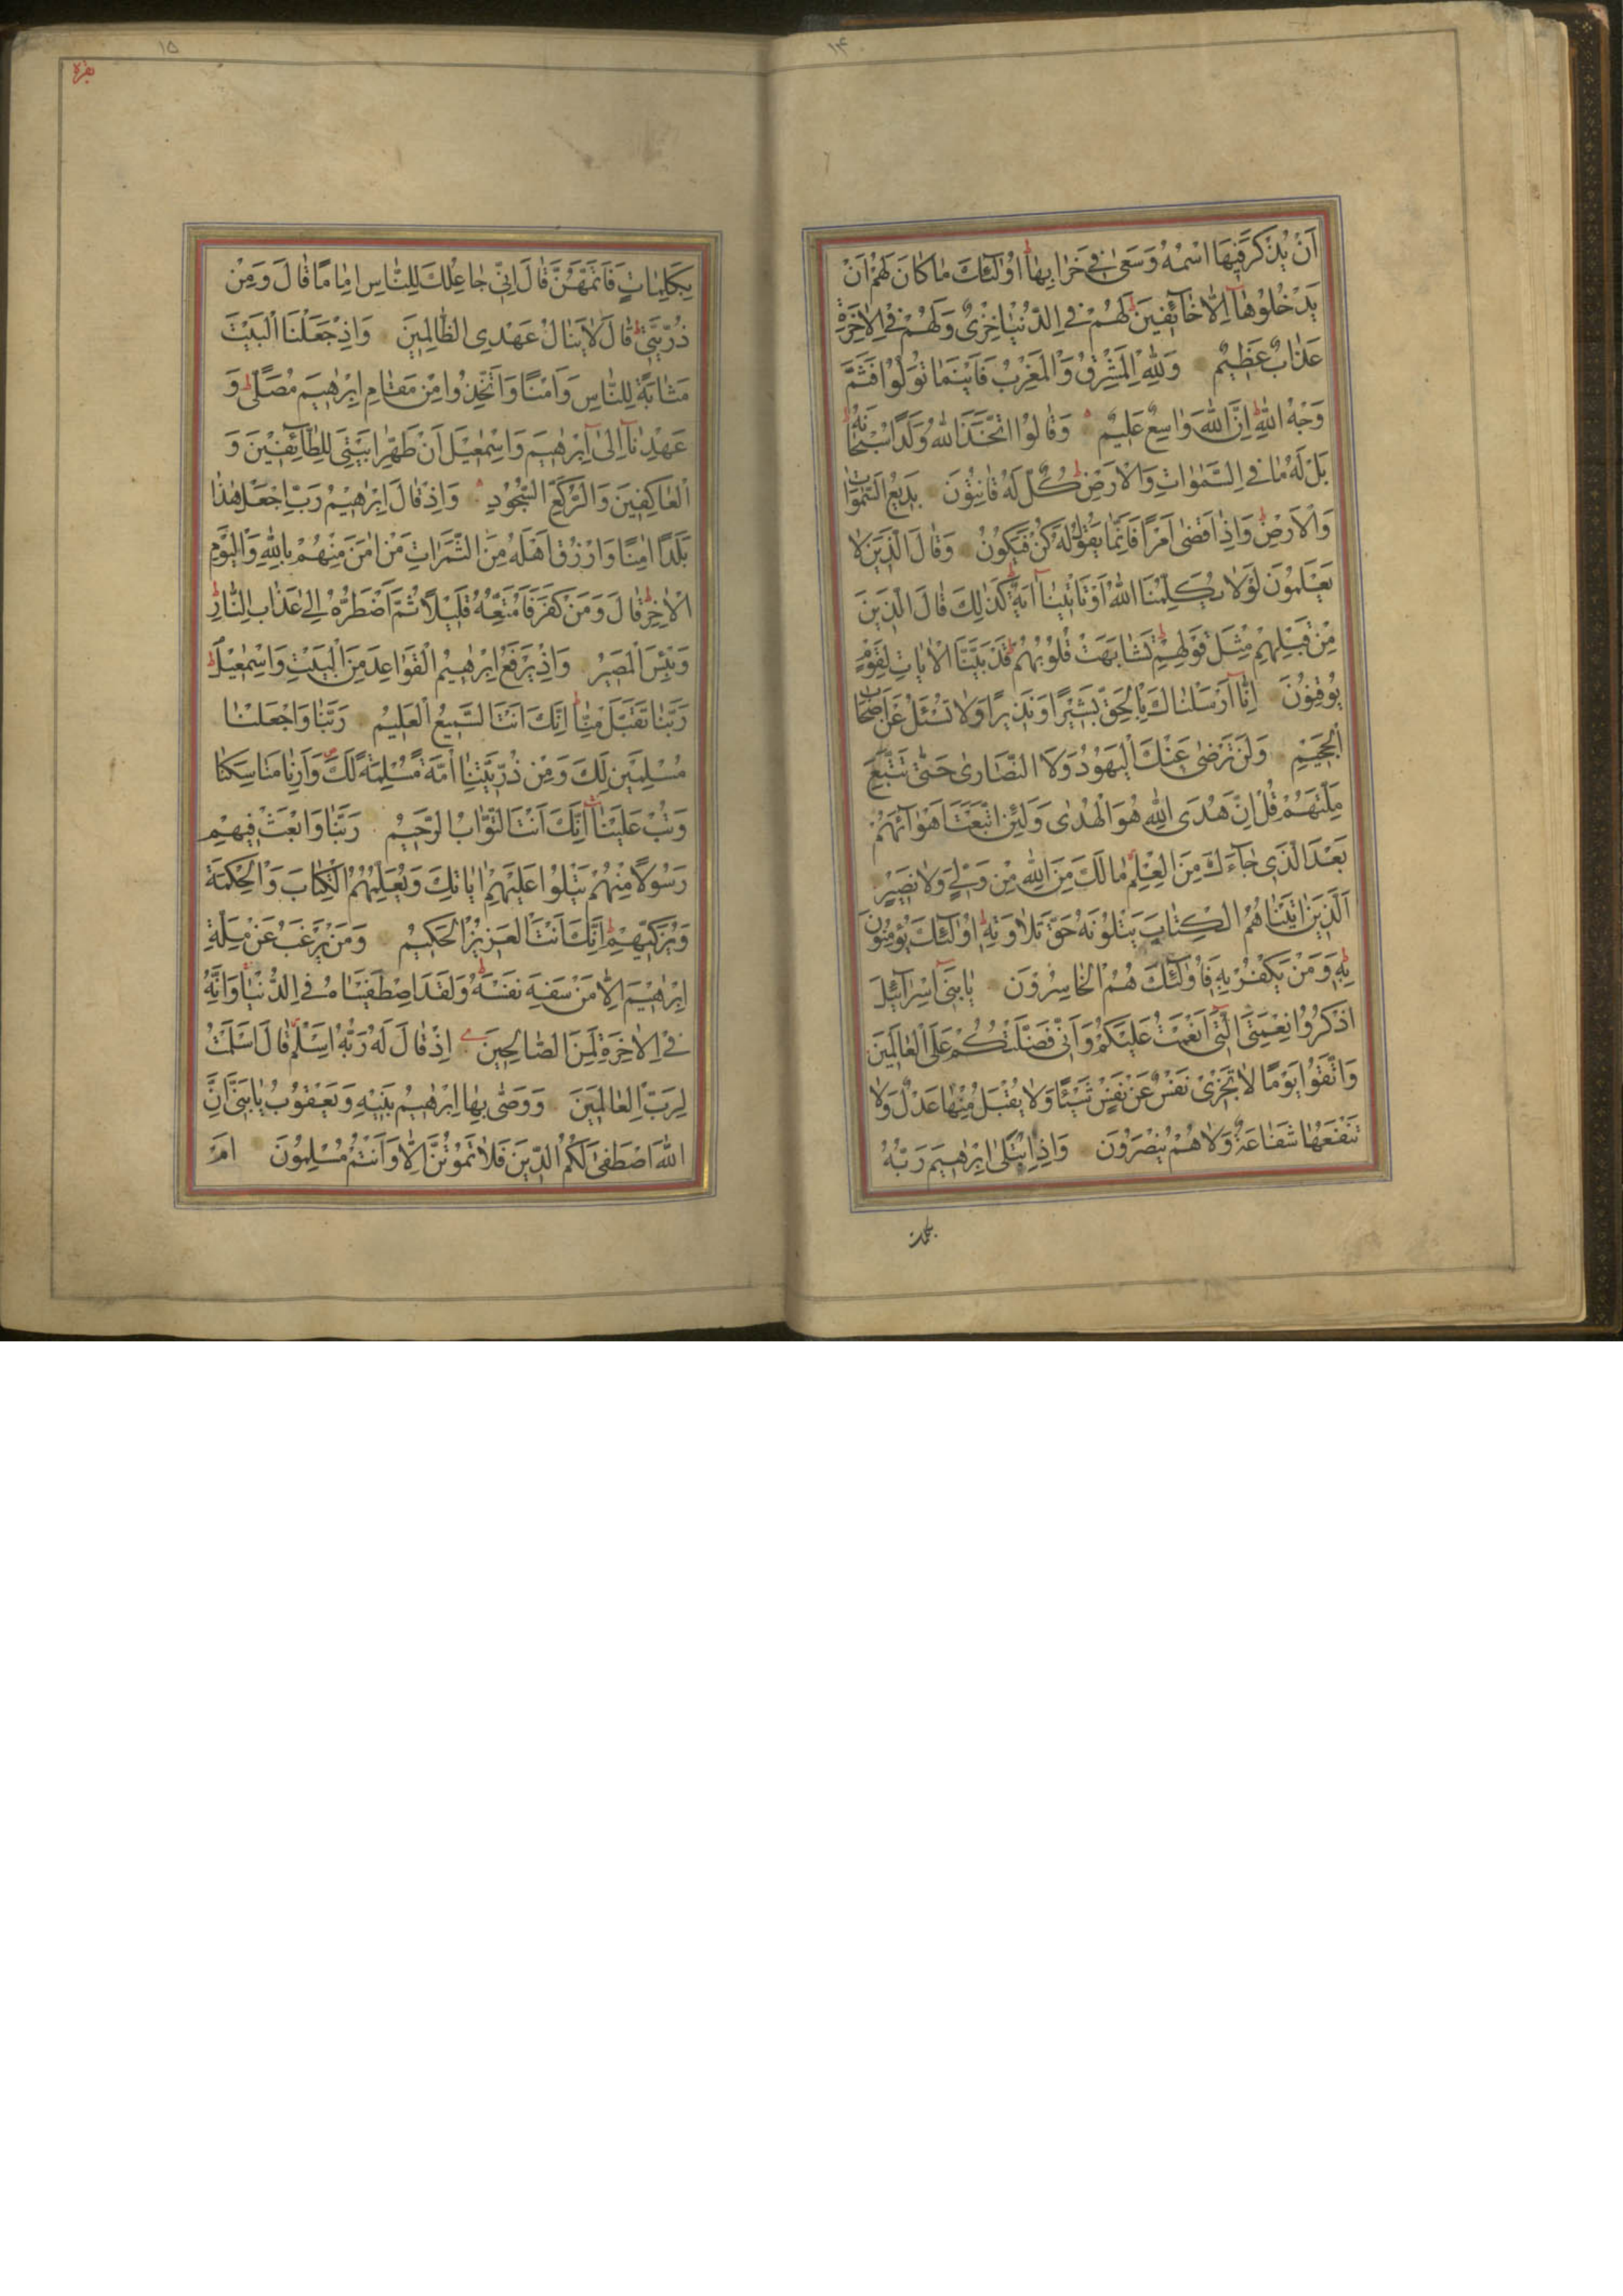 ۱۴
اَنْ يُذْكَرَ فِيهَا اسْمُهُ وَسَعىٰ فِي خَرابِهٰا اُولٰئِكَ مٰا كٰانَ لَهُمْ اَنْ
يَدْخُلُوهٰا اِلّٰا خٰائِفِينَ لَهُمْ فِي الدُّنْيٰا خِزْىٌ وَلَهُمْ فِي الْاٰخِرَةِ
عَذٰابٌ عَظِيمٌ وَلِلّٰهِ الْمَشْرِقُ وَالْمَغْرِبُ فَاَيْنَمٰا تُوَلُّوا فَثَمَّ
وَجْهُ اللّٰهِ اِنَّ اللّٰهَ وٰاسِعٌ عَلِيمٌ وَقٰالُوا اتَّخَذَ اللّٰهُ وَلَدًا سُبْحٰانَهُ
بَلْ لَهُ مٰا فِي السَّمٰوٰاتِ وَالْاَرْضِ كُلٌّ لَهُ قٰانِتُونَ بَدِيعُ السَّمٰوٰاتِ
وَالْاَرْضِ وَاِذٰا قَضىٰ اَمْرًا فَاِنَّمٰا يَقُولُ لَهُ كُنْ فَيَكُونُ وَقٰالَ الَّذِينَ لٰا
يَعْلَمُونَ لَوْلٰا يُكَلِّمُنَا اللّٰهُ اَوْ تَاْتِينٰا اٰيَةٌ كَذٰلِكَ قٰالَ الَّذِينَ
مِنْ قَبْلِهِمْ مِثْلَ قَوْلِهِمْ تَشٰابَهَتْ قُلُوبُهُمْ قَدْ بَيَّنَّا الْاٰيٰاتِ لِقَوْمٍ
يُوقِنُونَ اِنّٰا اَرْسَلْنٰاكَ بِالْحَقِّ بَشِيرًا وَنَذِيرًا وَلٰا تُسْئَلُ عَنْ اَصْحٰابِ
الْجَحِيمِ وَلَنْ تَرْضىٰ عَنْكَ الْيَهُودُ وَلَا النَّصٰارىٰ حَتّٰى تَتَّبِعَ
مِلَّتَهُمْ قُلْ اِنَّ هُدَى اللّٰهِ هُوَ الْهُدىٰ وَلَئِنِ اتَّبَعْتَ اَهْوٰائَهُمْ
بَعْدَ الَّذِي جٰاءَكَ مِنَ الْعِلْمِ مٰا لَكَ مِنَ اللّٰهِ مِنْ وَلِيٍّ وَلٰا نَصِيرٍ
اَلَّذِينَ اٰتَيْنٰاهُمُ الْكِتٰابَ يَتْلُونَهُ حَقَّ تِلٰاوَتِهِ اُولٰئِكَ يُؤْمِنُونَ
بِهِ وَمَنْ يَكْفُرْ بِهِ فَاُولٰئِكَ هُمُ الْخٰاسِرُونَ يٰا بَنِي اِسْرٰائِيلَ
اذْكُرُوا نِعْمَتِيَ الَّتِي اَنْعَمْتُ عَلَيْكُمْ وَاَنِّي فَضَّلْتُكُمْ عَلَى الْعٰالَمِينَ
وَاتَّقُوا يَوْمًا لٰا تَجْزِي نَفْسٌ عَنْ نَفْسٍ شَيْئًا وَلٰا يُقْبَلُ مِنْهٰا عَدْلٌ وَلٰا
تَنْفَعُهٰا شَفٰاعَةٌ وَلٰا هُمْ يُنْصَرُونَ وَاِذِ ابْتَلىٰ اِبْرٰهِيمَ رَبُّهُ
بكلمات
۱۵
بقره
بِكَلِمٰاتٍ فَاَتَمَّهُنَّ قٰالَ اِنِّي جٰاعِلُكَ لِلنّٰاسِ اِمٰامًا قٰالَ وَمِنْ
ذُرِّيَّتِي قٰالَ لٰا يَنٰالُ عَهْدِي الظّٰالِمِينَ وَاِذْ جَعَلْنَا الْبَيْتَ
مَثٰابَةً لِلنّٰاسِ وَاَمْنًا وَاتَّخِذُوا مِنْ مَقٰامِ اِبْرٰهِيمَ مُصَلًّى وَ
عَهِدْنٰا اِلىٰ اِبْرٰهِيمَ وَاِسْمٰعِيلَ اَنْ طَهِّرٰا بَيْتِيَ لِلطّٰائِفِينَ وَ
الْعٰاكِفِينَ وَالرُّكَّعِ السُّجُودِ وَاِذْ قٰالَ اِبْرٰهِيمُ رَبِّ اجْعَلْ هٰذٰا
بَلَدًا اٰمِنًا وَارْزُقْ اَهْلَهُ مِنَ الثَّمَرٰاتِ مَنْ اٰمَنَ مِنْهُمْ بِاللّٰهِ وَالْيَوْمِ
الْاٰخِرِ قٰالَ وَمَنْ كَفَرَ فَاُمَتِّعُهُ قَلِيلًا ثُمَّ اَضْطَرُّهُ اِلىٰ عَذٰابِ النّٰارِ
وَبِئْسَ الْمَصِيرُ وَاِذْ يَرْفَعُ اِبْرٰهِيمُ الْقَوٰاعِدَ مِنَ الْبَيْتِ وَاِسْمٰعِيلُ
رَبَّنٰا تَقَبَّلْ مِنّٰا اِنَّكَ اَنْتَ السَّمِيعُ الْعَلِيمُ رَبَّنٰا وَاجْعَلْنٰا
مُسْلِمَيْنِ لَكَ وَمِنْ ذُرِّيَّتِنٰا اُمَّةً مُسْلِمَةً لَكَ وَاَرِنٰا مَنٰاسِكَنٰا
وَتُبْ عَلَيْنٰا اِنَّكَ اَنْتَ التَّوّٰابُ الرَّحِيمُ رَبَّنٰا وَابْعَثْ فِيهِمْ
رَسُولًا مِنْهُمْ يَتْلُوا عَلَيْهِمْ اٰيٰاتِكَ وَيُعَلِّمُهُمُ الْكِتٰابَ وَالْحِكْمَةَ
وَيُزَكِّيهِمْ اِنَّكَ اَنْتَ الْعَزِيزُ الْحَكِيمُ وَمَنْ يَرْغَبُ عَنْ مِلَّةِ
اِبْرٰهِيمَ اِلّٰا مَنْ سَفِهَ نَفْسَهُ وَلَقَدِ اصْطَفَيْنٰاهُ فِي الدُّنْيٰا وَاِنَّهُ
فِي الْاٰخِرَةِ لَمِنَ الصّٰالِحِينَ اِذْ قٰالَ لَهُ رَبُّهُ اَسْلِمْ قٰالَ اَسْلَمْتُ
لِرَبِّ الْعٰالَمِينَ وَوَصّٰى بِهٰا اِبْرٰهِيمُ بَنِيهِ وَيَعْقُوبُ يٰا بَنِيَّ اِنَّ
اللّٰهَ اصْطَفىٰ لَكُمُ الدِّينَ فَلٰا تَمُوتُنَّ اِلّٰا وَاَنْتُمْ مُسْلِمُونَ اَمْ